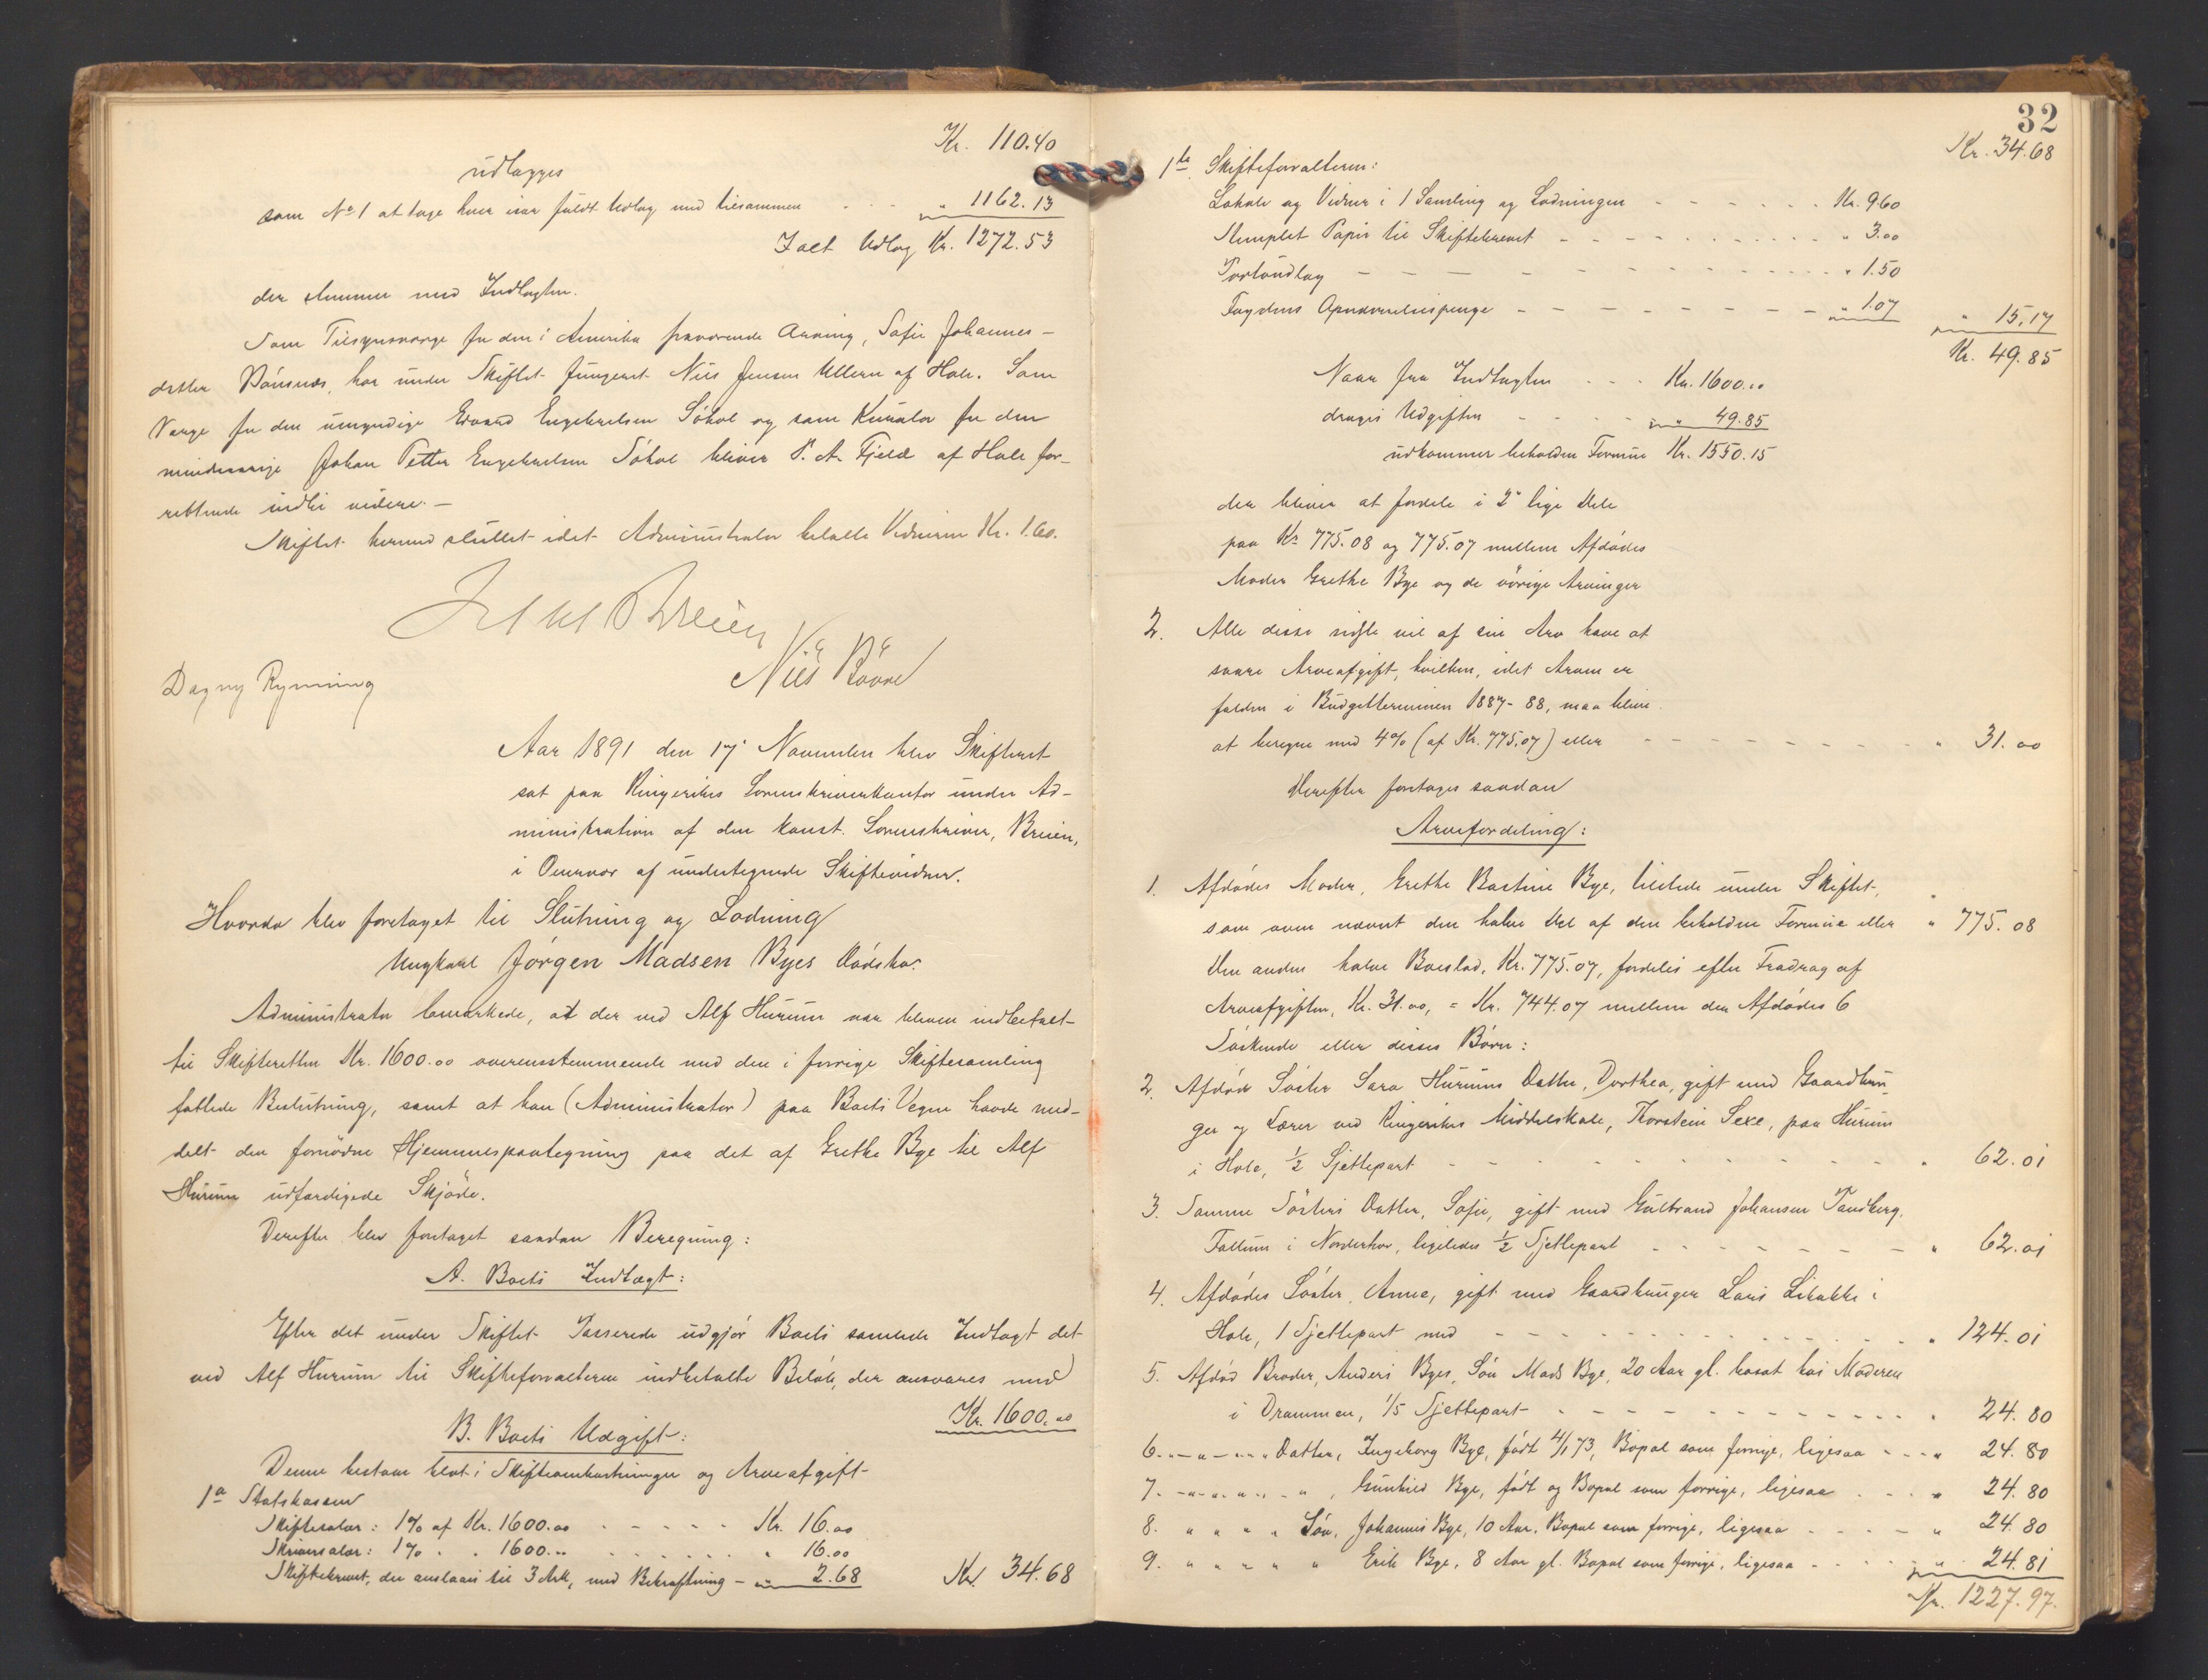 Kr. 110.40
udlægges
som No 1 at tage hver især fuldt Udlæg med tilsammen - - - " 1162.13
Ialt Udlæg Kr. 1272.53
der stemmer med Indtægten.
Som Tilsynsværge for den i Amerika fraværende Arving, Sofie Johannes-
datter Bönsnæs, har under Skiftet fungeret Nils Jensen Ullern af Hole. Som
Værge for den umyndige Edvard Engebretsen Söhol og som Kurator for den
mindreaarige Johan Petter Engebretsen Söhol bliver P. A. Fjeld af Hole for-
rettende indtil videre. -
Skiftet hermed sluttet idet Administrator betalte Vidnerne Kr. 1.60.
Breien
Nils Bövre
Dagny Rynning
Aar 1891 den 17' November blev Skifteret
sat paa Ringerikes Sorenskriverkontor under Ad-
ministration af den const. Sorenskriver, Breien,
i Overvær af undertegnede Skiftevidner.
Hvorda blev foretaget til Slutning og Lodning
Ungkarl Jörgen Madsen Byes Dödsbo.
Administrator bemærkede, at der ved Alf Hurum var bleven indbetalt
til Skifteretten Kr. 1600.00 overensstemmende med den i forrige Skiftesamling
fattede Beslutning, samt at han (Administrator) paa Boets Vegne havde med-
delt den fornödne Hjemmelspaategning paa det af Grethe Bye til Alf
Hurum udfærdigede Skjöde.
Derefter blev foretaget saadan Beregning:
A. Boets Indtægt:
Efter det under Skiftet Passerede udgjör Boets samlede Indtægt det
ved Alf Hurum til Skifteforvalteren indbetalte Belöb, der ansvares med
Kr. 1600.00
B. Boets Udgift:
Denne bestaar blot i Skifteomkostninger og Arveafgift
1a Statskassen
Skiftesalær: 1% af Kr. 1600.00 - - - - - Kr. 16.00
Skriversalær: 1% " " 1600.00 - - - - - " 16.00
Skiftebrevet, der anslaaes til 3 Ark, med Bekræftning - " 2.68 Kr. 34.68
32
Kr. 34.68
1b. Skifteforvalteren:
Lokale og Vidner i 1 Samling og Lodningen - - - - - - Kr. 9.60
Stemplet Papir til Skiftebrevet - - - - - - - - - - " 3.00
Portoudlæg - - - - - - - - - - - - " 1.50
Fogdens Opkrævelsespenge - - - - - - - - - " 1.07 " 15.17
Kr. 49.85
Naar fra Indtægten - - - Kr. 1600.00
drages Udgiften - - - - - " 49.85
udkommer beholden Formue Kr. 1550.15
der bliver at fordele i 2de lige Dele
paa Kr 775.08 og 775.07 mellem Afdödes
Moder Grethe Bye og de övrige Arvinger
2. Alle disse sidste vil af sin Arv have at
svare Arveafgift, hvilken, idet Arven er
falden i Budgetterminen 1887-88, maa blive
at beregne med 4% (af Kr. 775.07) eller - - - - - - - - - " 31.00
Derefter foretages saadan
Arvefordeling:
1. Afdödes Moder, Grethe Bastine Bye, tildeles under Skiftet,
som oven nævnt den halve Del af den beholdne Formue eller " 775.08
Den anden halve Boeslod, Kr. 775.07, fordeles efter Fradrag af
Arveafgiften, Kr. 31.00, = Kr. 744.07 mellem den Afdödes 6
Söskende eller disses Börn:
2. Afdöd Söster Sara Hurums Datter, Dorthea, gift med Gaardbru-
ger og Lærer ved Ringerikes Middelskole, Thorstein Sexe, paa Hurum
i Hole, 1/2 Sjettepart - - - - - - - - - - " 62.01
3. Samme Sösters Datter, Sofie, gift med Gulbrand Johansen Tandberg,
Follum i Norderhov, ligeledes 1/2 Sjettepart - - - - - - - " 62.01
4. Afdödes Söster, Anne, gift med Gaardbruger Lars Libakke i
Hole, 1 Sjettepart med - - - - - - - - - - - - " 124.01
5. Afdöd Broder, Anders Byes, Sön Mads Bye, 20 Aar gl. bosat hos Moderen
i Drammen, 1/5 Sjettepart - - - - - - - - - - - - " 24.80
6. - " - " - " Datter, Ingeborg Bye, födt 4/1 73, Bopæl som forrige, ligesaa - - - " 24.80
7. - " - " - " - " , Gunhild Bye, födt og Bopæl som forrige, ligesaa - - - " 24.80
8. " " " " Sön, Johannes Bye, 10 Aar, Bopæl som forrige, ligesaa - - - - " 24.80
9. " " " " " Erik Bye, 8 Aar gl. Bopæl som forrige, ligesaa - - - - " 24.81
Kr. 1227.97.